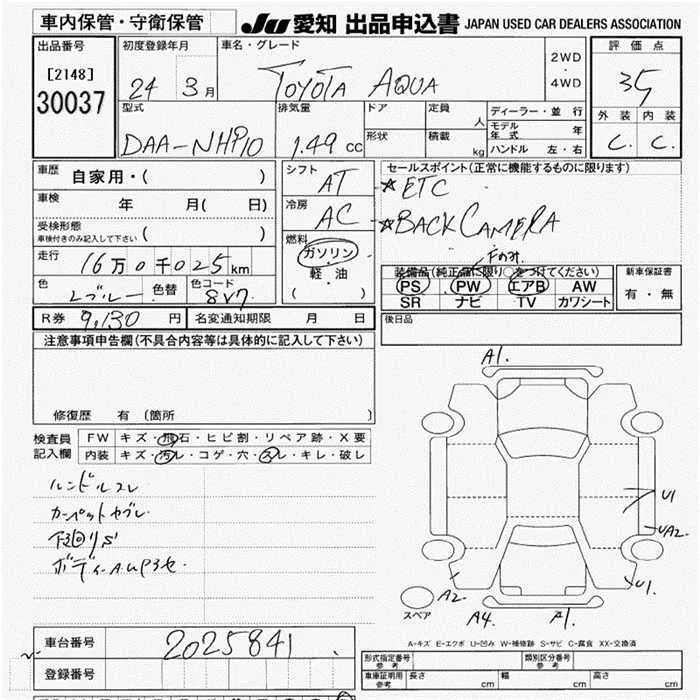 車内保管・守衛保管
JU 愛知 出品申込書 JAPAN USED CAR DEALERS ASSOCIATION
出品番号
[2148]
30037
初度登録年月
24 3月
車名・グレード
TOYOTA AQUA
2WD
・
4WD
評価点
外装 内装
C. C.
型式
DAA-NHP10
排気量
1.49 cc
ドア
形状
定員
人
積載
kg
ディーラー・並行
モデル年式 年
ハンドル 左・右
車歴
自家用・( )
車検
年 月( 日)
受検形態
車検付きのみ記入して下さい ( )
走行
16万0千025km
色
Lブルー
色替
色コード
8V7
シフト
AT
冷房
AC
燃料
ガソリン
・
軽・油
( )
セールスポイント(正常に機能するものに限ります)
☆ETC
☆BACK CAMERA
Fのみ.
装備品(純正品に限り○をつけてください)
PS PW エアB AW
SR ナビ TV カワシート
新車保証書
有・無
R券 9,130 円
名変通知期限 月 日
後日品
注意事項申告欄(不具合内容等は具体的に記入して下さい)
修復歴 有 (箇所 )
検査員
記入欄
FW キズ・飛石・ヒビ割・リペア跡・X要
内装 キズ・汚レ・コゲ・穴・スレ・キレ・破レ
ハンドルスレ
カーペットヤブレ
下回りS
A1.
U1
UA2
U1.
A2
A4.
A1.
スペア
A-キズ E-エクボ U-凹み W-補修跡 S-サビ C-腐食 XX-交換済
車台番号
2025841
登録番号
形式指定番号 参考
類別区分番号 参考
車庫証明用 参考
長さ cm
幅 cm
高さ cm